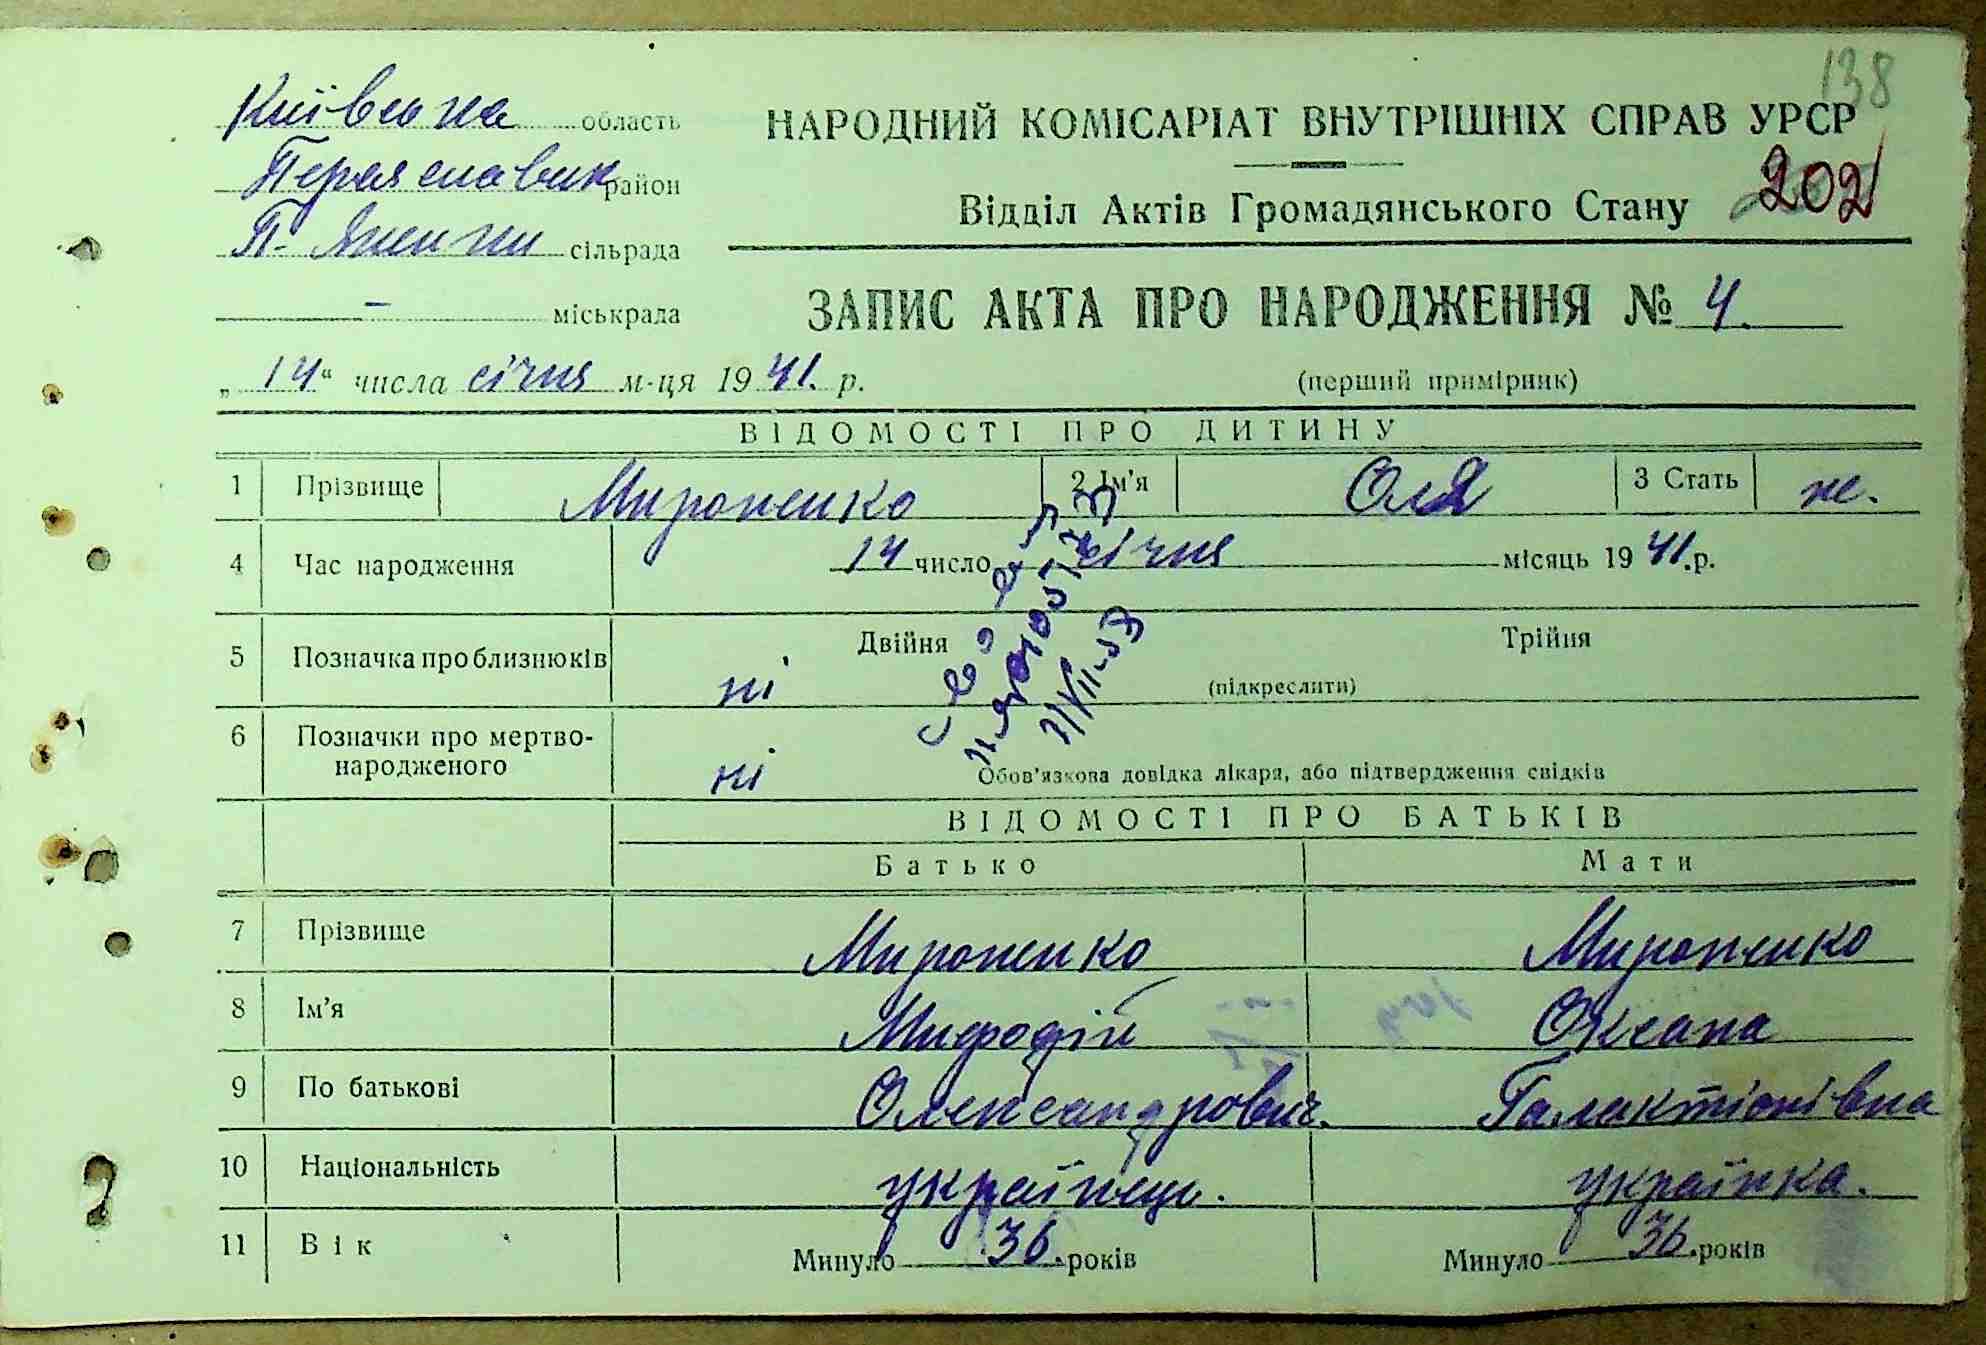 138
Київська область
НАРОДНИЙ КОМІСАРІАТ ВНУТРІШНІХ СПРАВ УРСР
Переяславськ район
202
Відділ Актів Громадянського Стану
П- сільрада
— міськрада
ЗАПИС АКТА ПРО НАРОДЖЕННЯ № 4.
„14“ числа січня м-ця 1941. р.
(перший примірник)
ВІДОМОСТІ ПРО ДИТИНУ
1 Прізвище Мироненко 2 Ім'я Оля 3 Стать ж.
4 Час народження 14 число січня місяць 1941.р.
5 Позначка про близнюків ні Двійня Трійня
(підкреслити)
6 Позначки про мертво-
народженого ні
Обов'язкова довідка лікаря, або підтвердження свідків
7/VII-53
ВІДОМОСТІ ПРО БАТЬКІВ
Батько Мати
7 Прізвище Мироненко Мироненко
8 Ім'я Мифодій Оксана
9 По батькові Олександрович. Галактіонівна
10 Національність українець. українка.
11 Вік Минуло 36. років Минуло 36. років